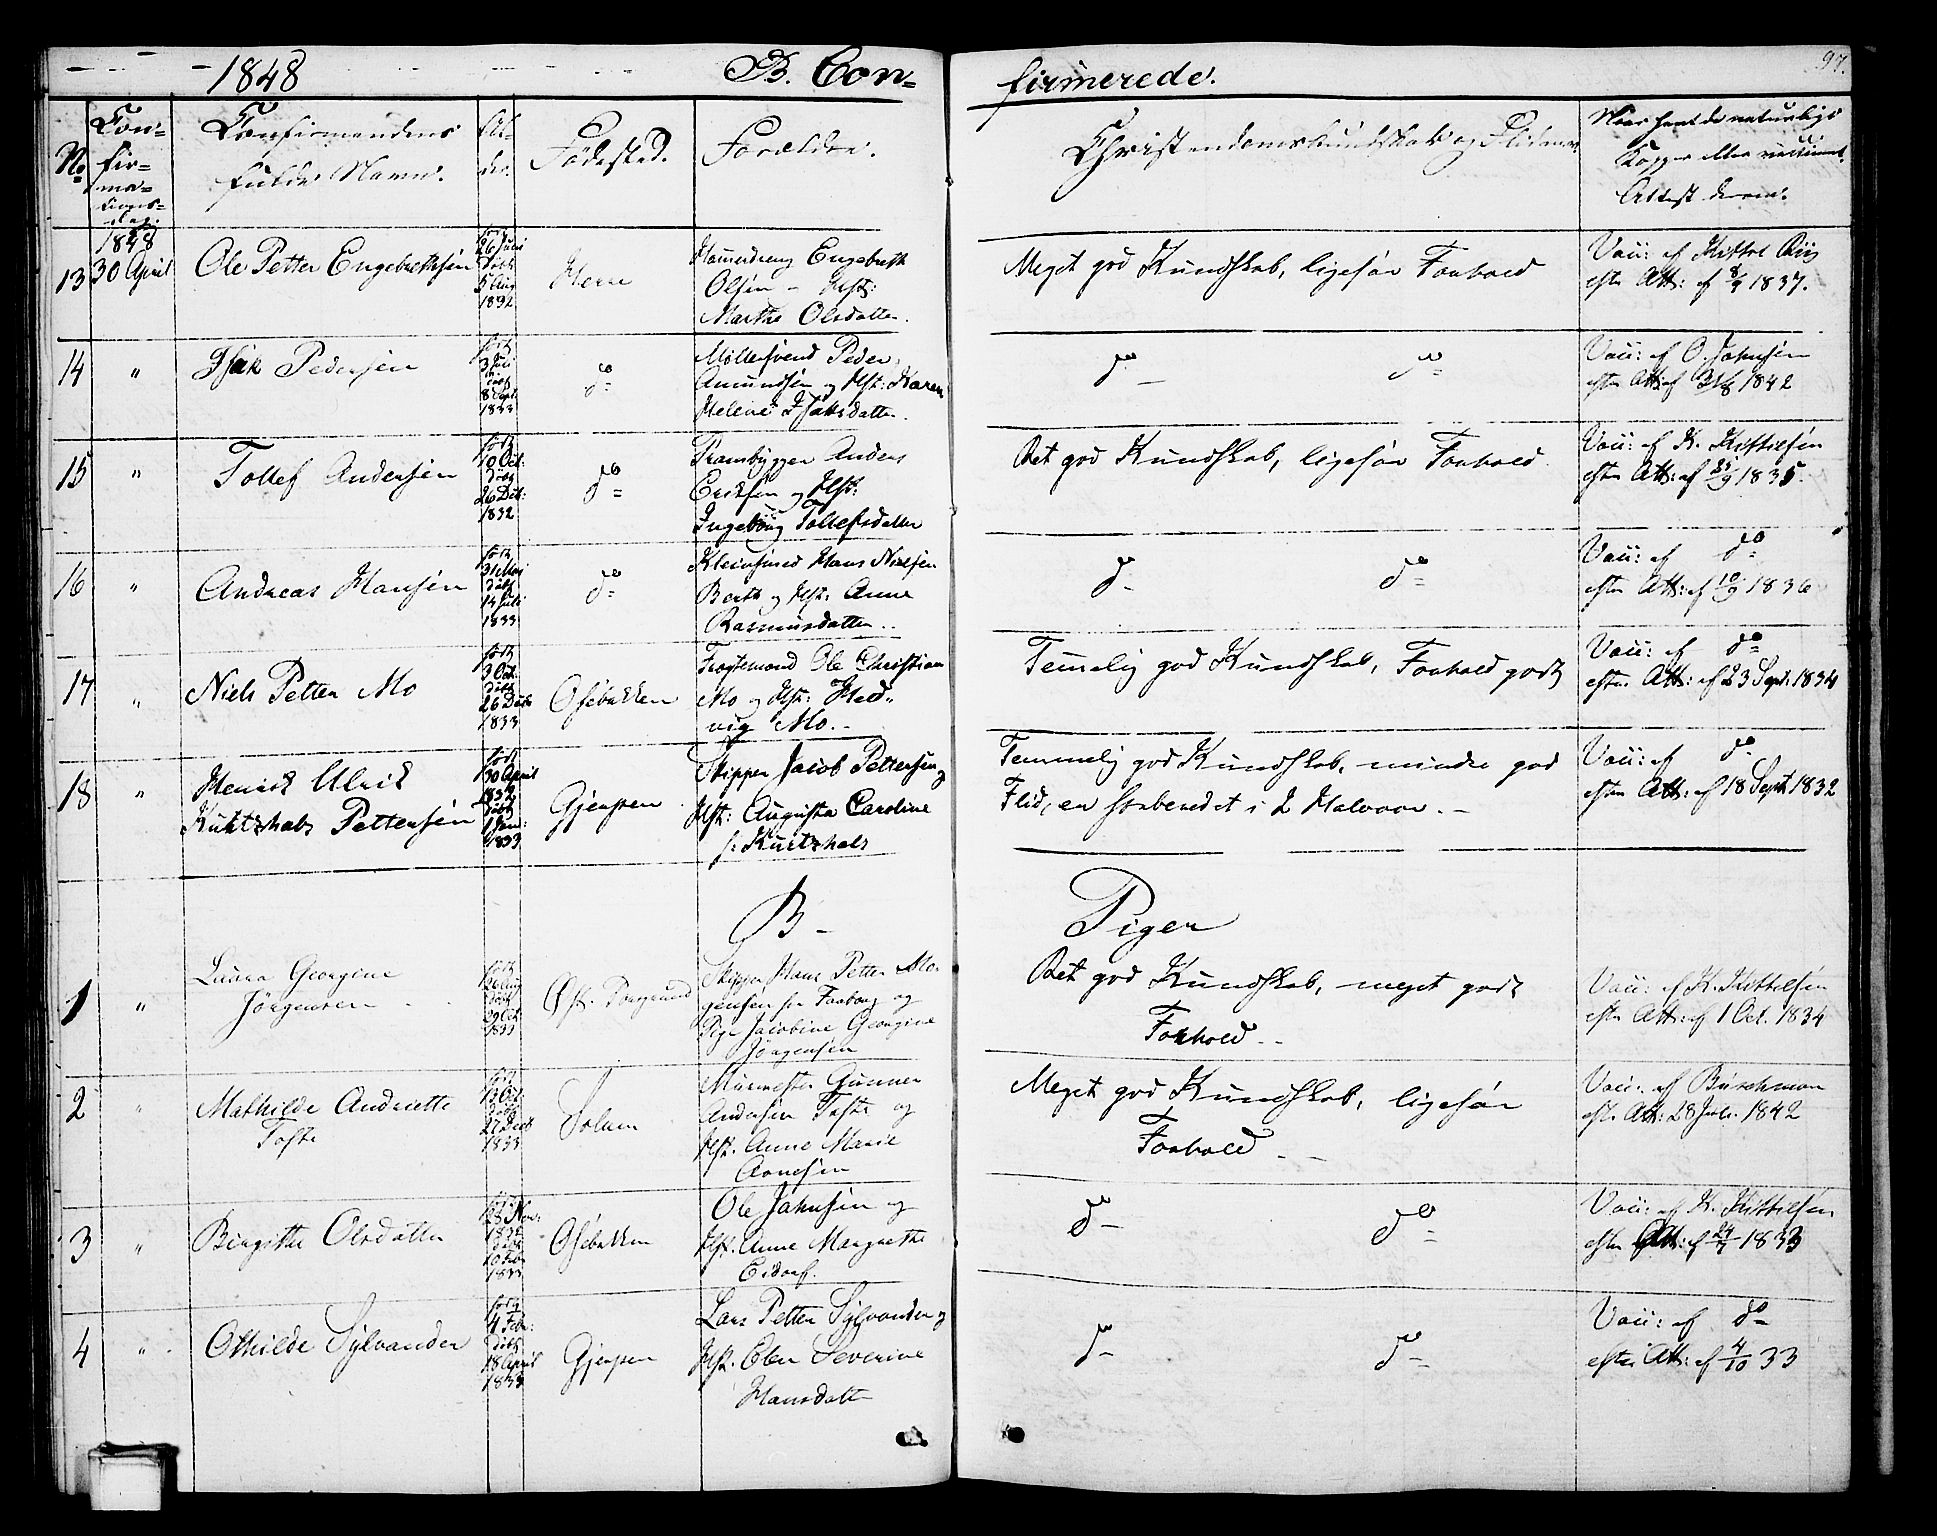 1848 B. Con=
firmerede. 97.
No
Con=
fir=
ma=
tions=
dag.
Confirmandens
fulde Navn.
Al-
der.
Fødested.
Forældre.
Christendomskundskab og Flid
Naar havt de naturlige
Kopper eller vaccineret
Attest derom.
13
1848
30 April
Ole Petter Engebrethsen
født
26 Juni
døbt
5 Aug
1832
Herre
Engebreth
Olsen – Hst:
Marthe Olsdatter.
Meget god Kundskab, ligesaa Forhold
Vac: af Kittel Riis
efter Att: af 8/9 1837.
14 "
Isak Pedersen
født
3 Juli
døbt
8 Sept
1833
do
Møllersvend Peder
Amundsen og Hst: Karen
Helene Isaksdatter.
do – do
Vac: af O. Johnsen
efter Att: af 31/8 1842
15 "
Tollef Andersen
født
10 Oct:
døbt
26 Dec:
1832
do
Prambygger Anders
Eriksen og Hst:
Ingeborg Tollefsdatter
Ret god Kundskab, ligesaa Forhold
Vac: af K. Kittilsen
efter Att: af 25/9 1835.
16 "
Andreas Hansen
født
31 Mai
døbt
14 Juli
1833
do
Kleinsmed Hans Nielsen
Berth og Hst: Anne
Rasmusdatter..
do do
Vac: af do
efter Att: af 10/9 1836
17 "
Niels Petter Mo
født
3 Oct.
døbt
26 Decb
1833
Osebakken
Fragtemand Ole Christian
Mo og Hst: Hed=
vig Mo.
Temelig god Kundskab, Forhold godt
Vac: af do
efter Att: af 23 Sept: 1834
18 "
Henrik Ulrik
Kurtzhals Pettersen
født
30 April
1832
døbt
1 Jan:
1833
Gjerpen
Skipper Jacob Pettersen og
Hst: Augusta Caroline
f: Kurtzhals
Temmelig god Kundskab, mindre god
Flid, er forberedet i 2 Halvaar. –
Vac: af do
efter Att: af 18 Sept 1832
B –
Piger
1 "
Laura Georgine
Jörgensen
født
26 Aug
døbt
29 Oct
1833
Øst. Porsgrund
Skipper Hans Petter Mo-
gensen fra Faaborg og
Pige Jacobine Georgine
Jörgensen
Ret god Kundskab, meget godt
Forhold. –
Vac: af K. Kittilsen
efter Att: af 1 Oct. 1834
2 "
Mathilde Andriette
Tofte
født
13 Oct.
døbt
27 Decb
1833
Solum
Murmester Gunner
Andersen Tofte og
Hst. Anne Marie
Arnesen
Meget god Kundskab, ligesaa
Forhold –
Vac: af Buschman
eft. Att: 28 Juli 1842
3 "
Birgitte Olsdatter
født
28 Nov:
1832
døbt
10 Febr
1833
Osebakken
Ole Johnsen og
Hst. Anne Margrethe
Eidorf.
do do
Vac: af K. Kittilsen
efter Att: af 24/7 1833
4 "
Othilde Sylvander
født
4 Febr:
døbt
18 April
1833
Gjerpen
Lars Petter Sylvander og
Hst. Elen Severine
Hansdatter
do do
Vac: af do
efter Att: af 4/10 33